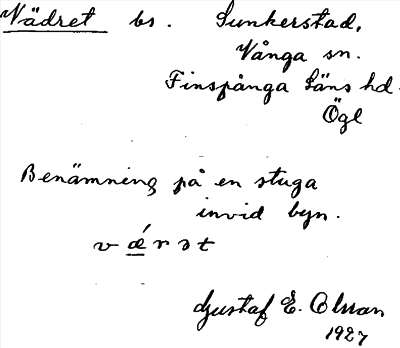 Vädret bs. Sunkerstad,
Vånga sn.
Finspånga läns hd.
Ögl
Benämning på en stuga
invid byn.
v ǽ r ə t
Gustaf E. Olsson
1927